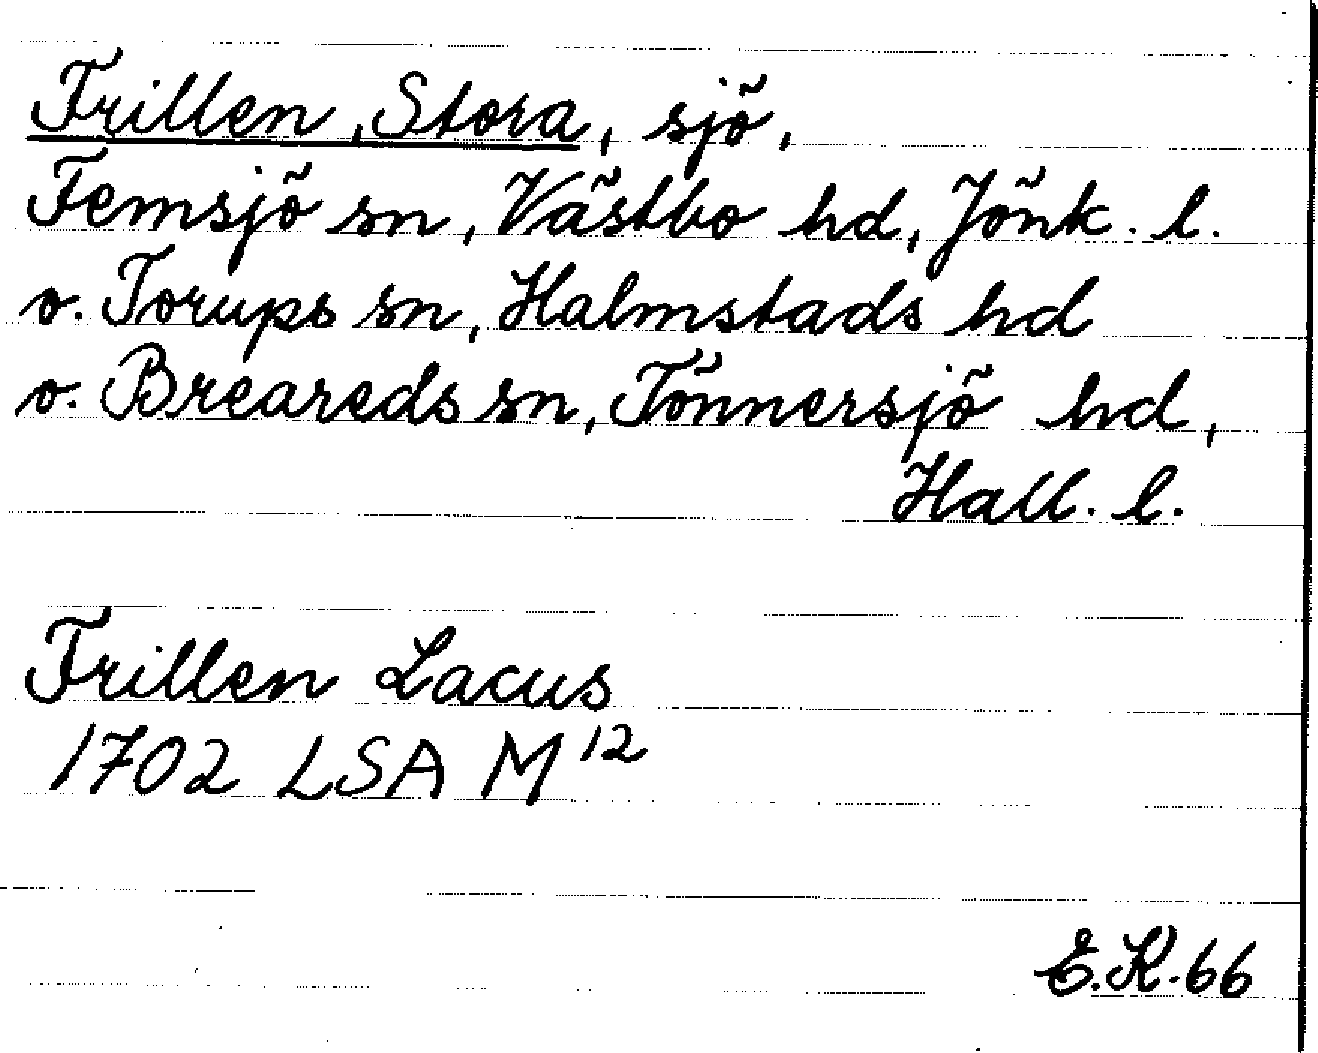 Frillen, Stora, sjö,
Femsjö sn, Västbo hd, Jönk. l.
o. Torups sn, Halmstads hd
o. Breareds sn, Tönnersjö hd,
Hall. l.
Frillen Lacus
1702 LSA M¹²
E.K. 66